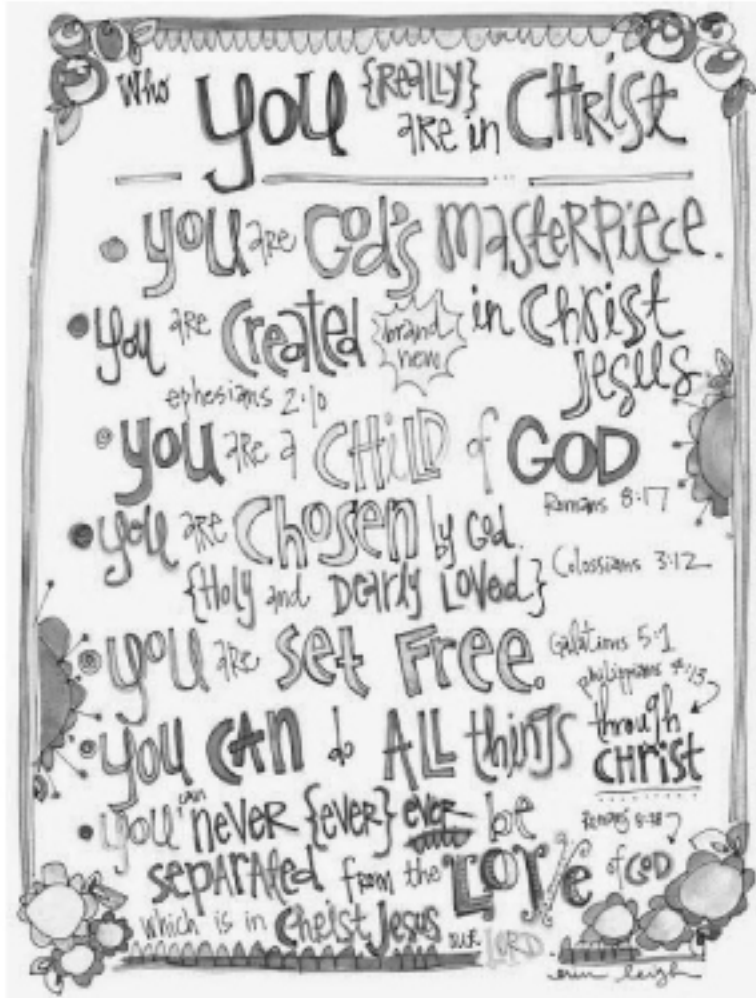 Who you {Really} are in Christ
you are God's masterpiece.
you are created brand new in Christ Jesus
ephesians 2:10
you are a CHILD of GOD
Romans 8:17
you are Chosen by God.
{Holy and Dearly Loved} Colossians 3:12
you are set Free. Galatians 5:1
you can do ALL things through CHRIST
philippians 4:13
you can never {ever} ever be
separated from the Love of GOD
Romans 8:38
which is in Christ Jesus our LORD
erin leigh